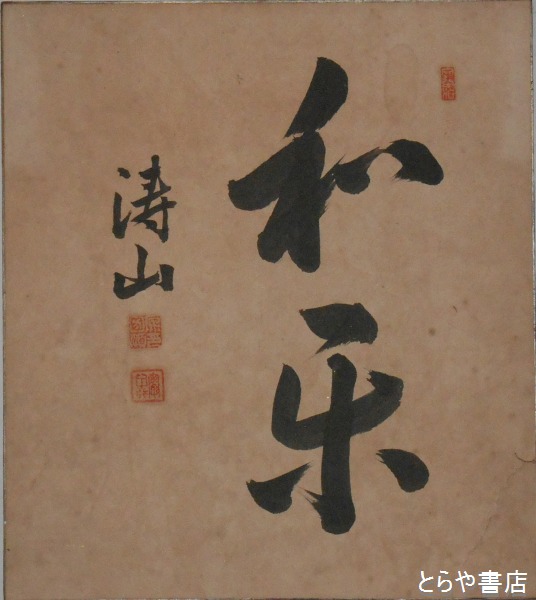 和乐
涛山
とらや書店